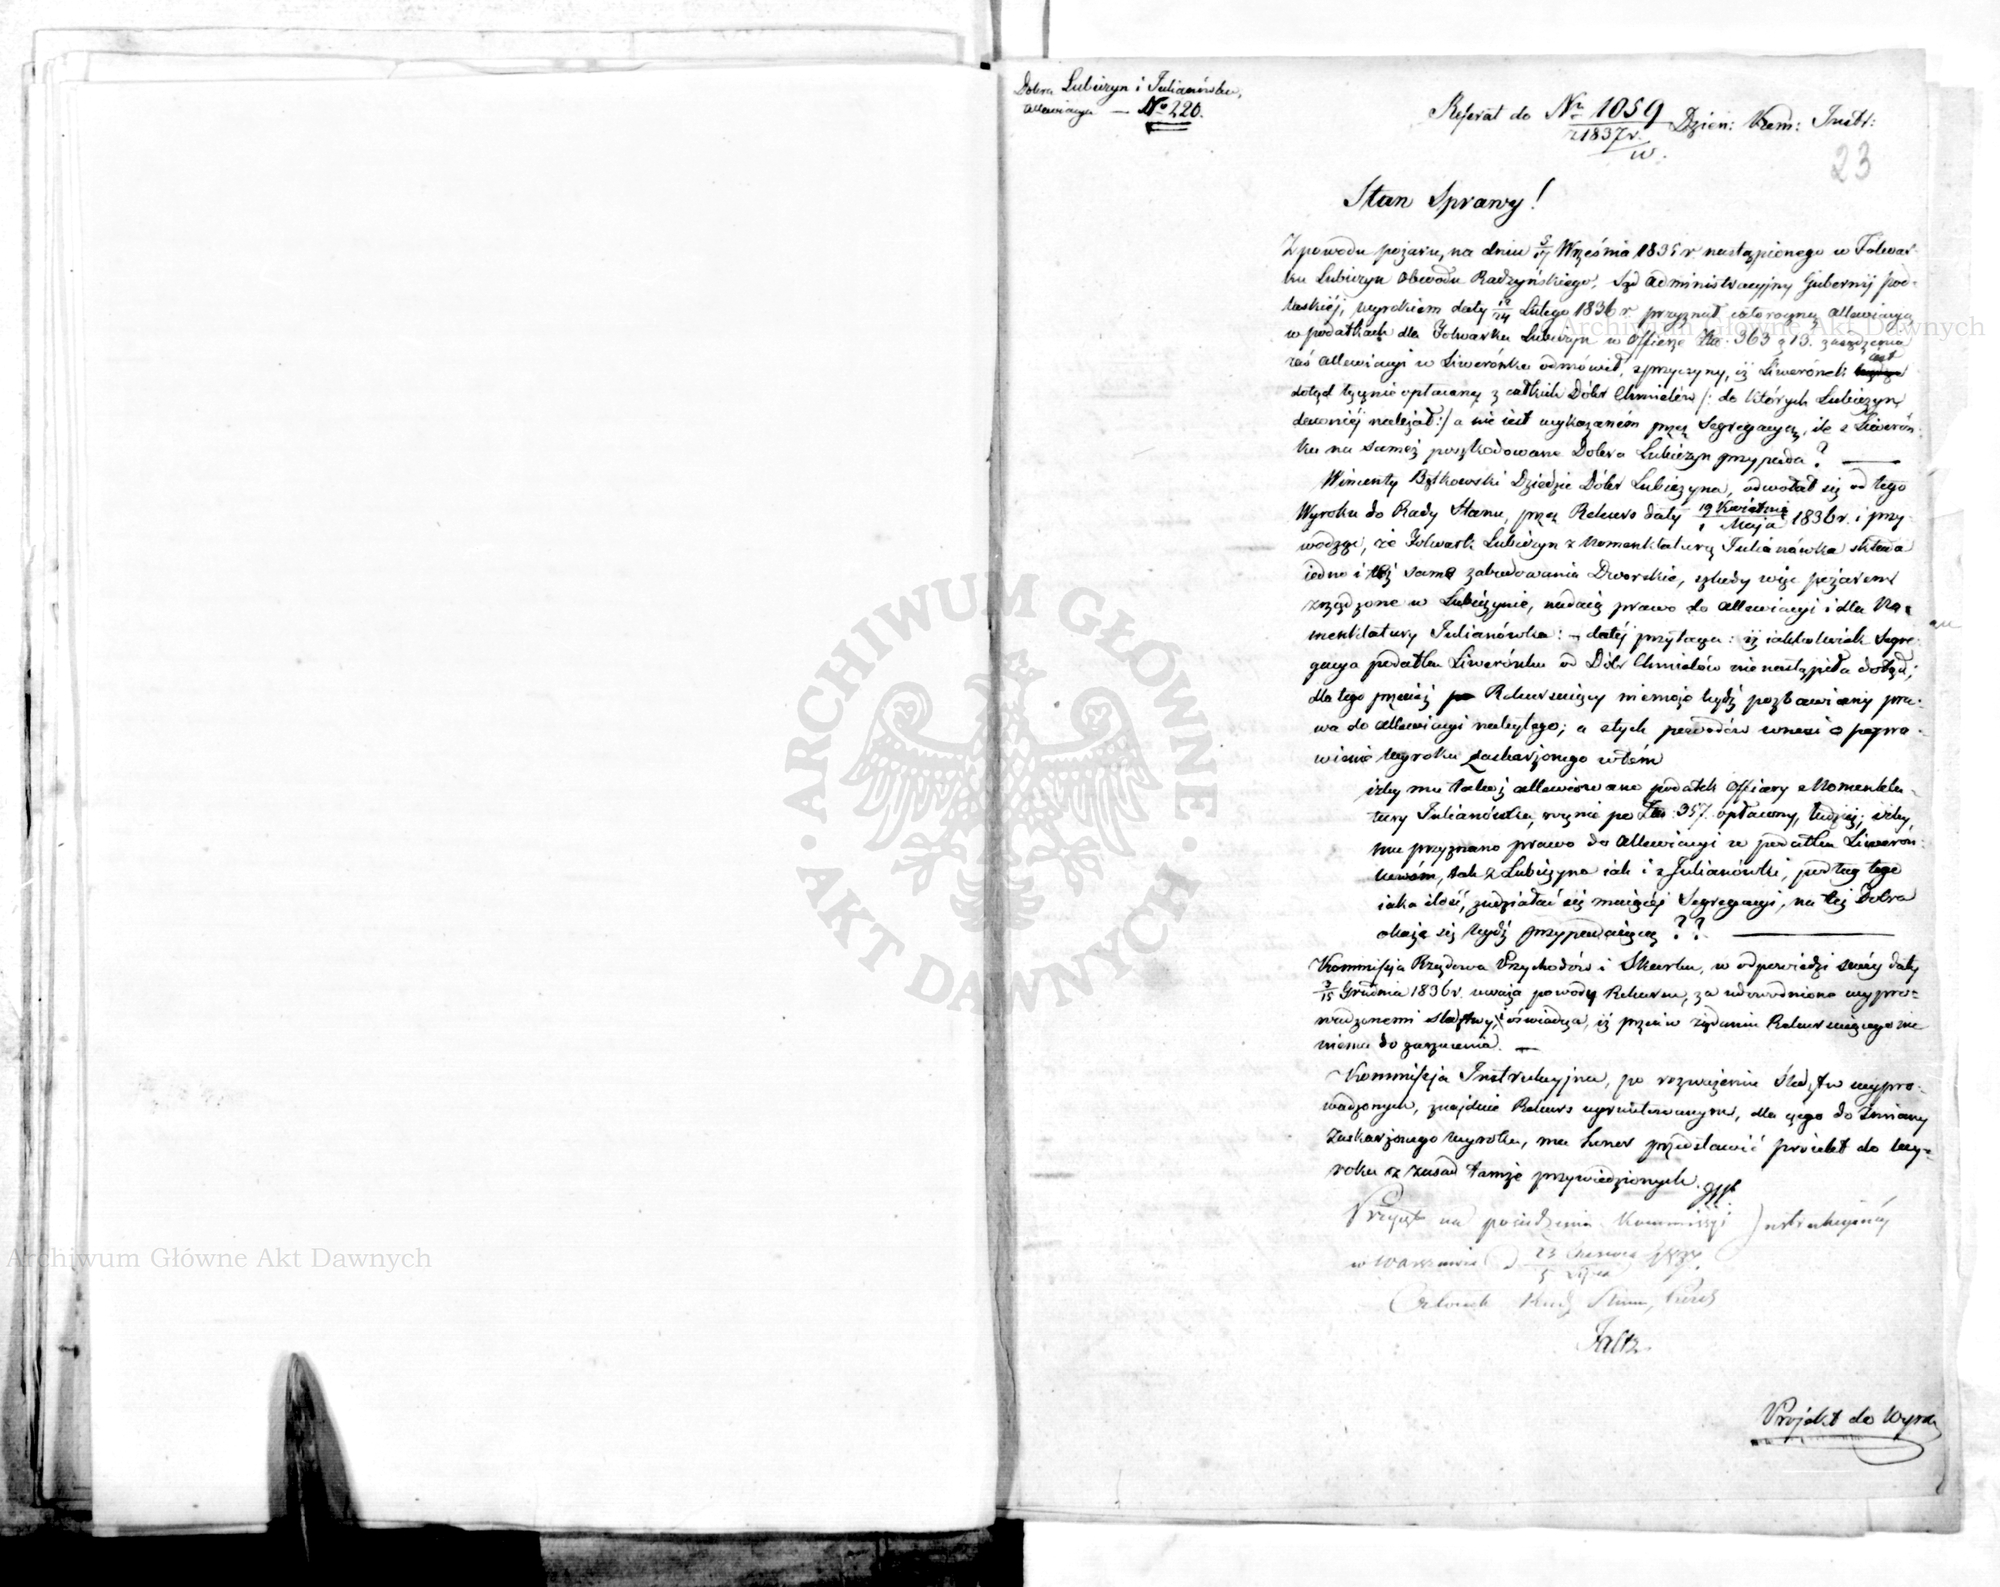 Dobra Lubiczyn i Julianówka,
allewiacya — No 220.
Referat do Nr 1059 Dzien: Kom: Instr:
z 1837 r.
w.
23
Stan Sprawy!
Z powodu pożaru, na dniu 5/17 Września 1835 r nastąpionego w Folwar-
ku Lubiczyn Obwodu Radzyńskiego, Sąd administracyjny Gubernij pod-
laskiéj, wyrokiem daty 12/24 Lutego 1836 r przyznał całoroczną allewiacyą
w podatkach dla Folwarku Lubiczyn w Offierze Złp. 363 g 13. zarządzenia
zaś allewiacyi w Liwerónku odmówił, z przyczyny, iż Liwerónek iest
dotąd łącznie opłacany z całkich Dóbr Chmielów /: do których Lubiczyn
dawniéj należał :/ a nie iest wykazaném przez Segregacyą, ile z Liwerón-
ku na samez poszkodowane Dobra Lubiczyn przypada? —
Wincenty Bątkowski Dziedzic Dóbr Lubiczyna, odwołał się od tego
Wyroku do Rady Stanu, przez Rekurs daty 19 Kwietnia / 1 Maja 1836 r. i przy-
wodząc, że Folwark Lubiczyn z Nomenklaturą Julianówka składa
iedno i też same zabudowania Dworskie, szkody więc pożarem
zrządzone w Lubiczynie, nadaią prawo do allewiacyi i dla No-
menklatury Julianówka: — daléj przytacza: iż iakkolwiek Segre-
gacya podatku Liwerónku od Dóbr Chmielów nie nastąpiła dotąd;
dla tego przecież Rekursuiący niemoże bydź pozbawiony pra-
wa do allewiacyi należytego; a z tych powodów wnosi o popra-
wienie wyroku zaskarżonego w tém
iżby mu także allewiowano podatek offiary z Nomenkla-
tury Julianówka, rocznie po Złp. 357. opłacony, tudzież, iżby
mu przyznano prawo do allewiacyi w podatku Liwerón-
kowém, tak z Lubiczyna iak i z Julianówki, podług tego
iaka ilość, zudziałać się maiącéj Segregacyi, na też Dobra
okaże się bydź przypadaiącą ?? —
Kommissja Rządowa Przychodów i Skarbu, w odpowiedzi swéy daty
3/15 Grudnia 1836 r. uważa powody Rekursu, za udowodnione wypro-
wadzonemi śledztwy, i oświadcza, iż przeciw żądaniu Rekursuiącego nic
niema do zarzucenia. —
Kommissja Instrukcyjna, po rozważeniu śledztw wypro-
wadzonych, znajduie Rekurs ugruntowanym, dla czego do zmiany
zaskarżonego wyroku, ma honor przedstawić proiekt do wy-
roku z zasad tamże przywiedzionych.
Przyięt na posiedzeniu Kommissyi Instrukcyinéj
w Warszawie d 23 Czerwca / 5 Lipca
Członek Rady Stanu,
Faltz
Projekt do Wyroku